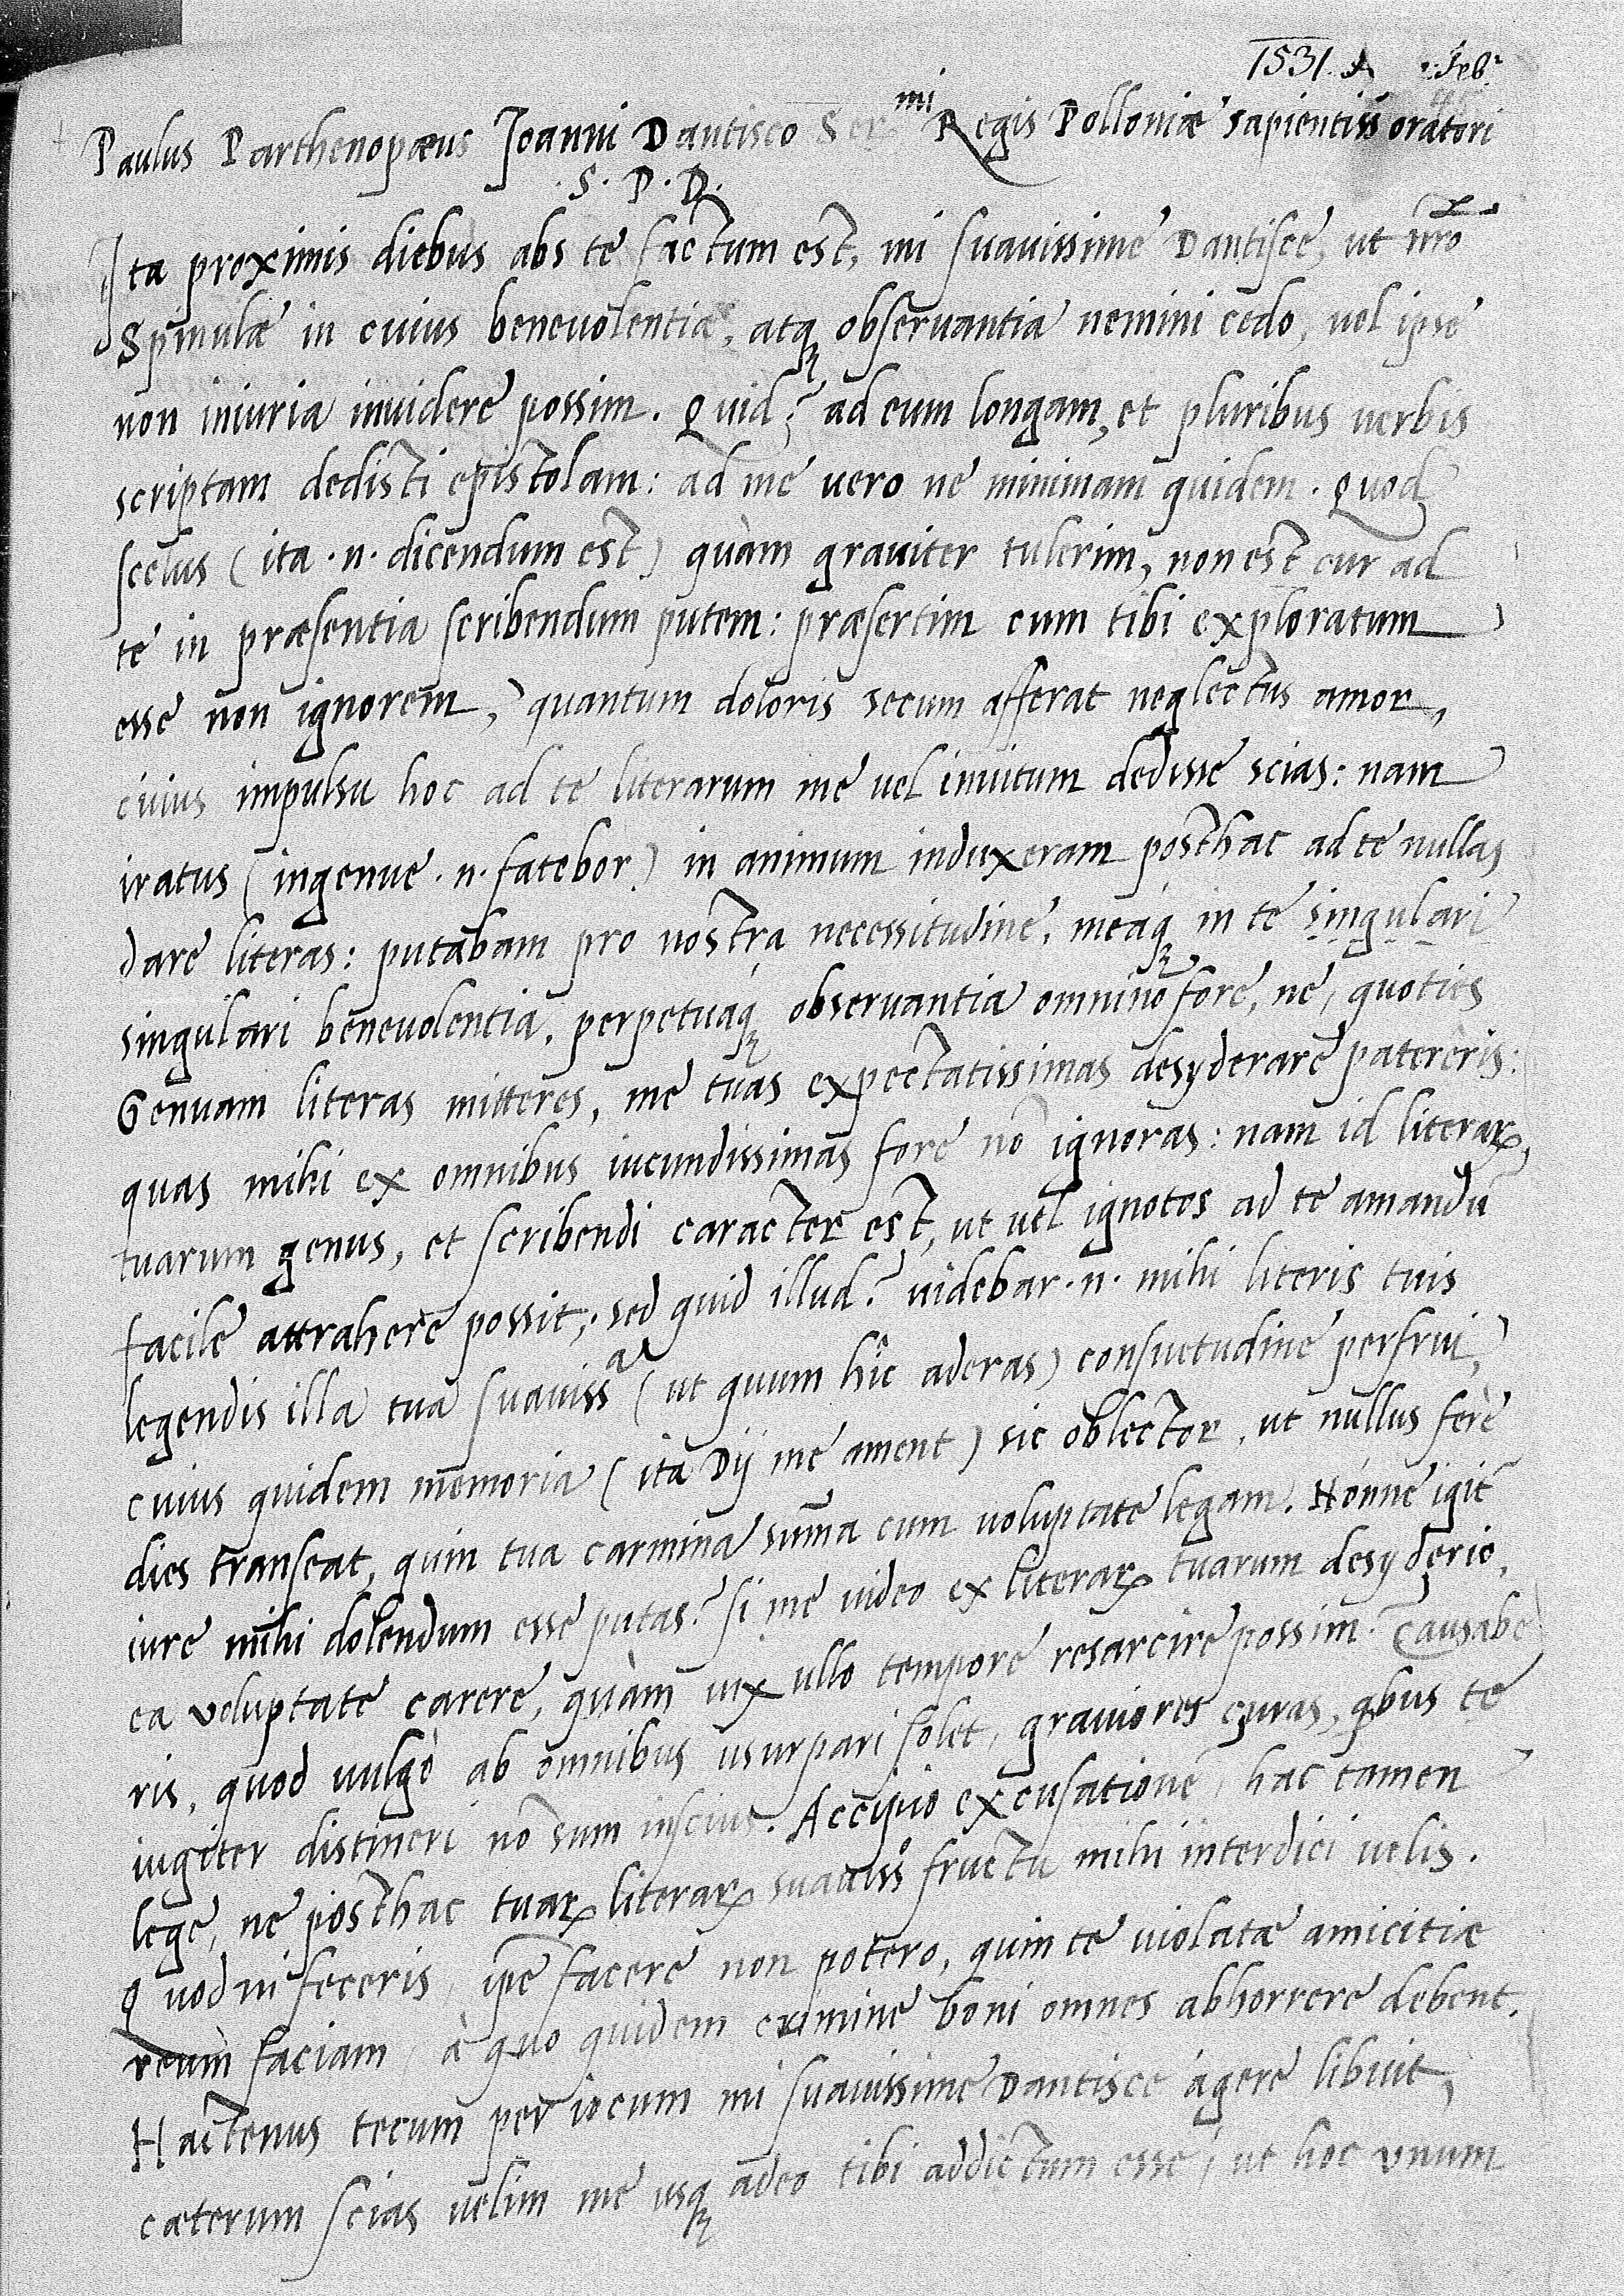 1531. Feb.
Paulus Parthenopæus Joanni Dantisco Ser.mi Regis Polloniæ sapientiss oratori
.S. P. D.
Ita proximis diebus abs te factum est, mi suavissime Dantisce, ut nro
Spinulæ in cuius benevolentia, atq observantia nemini cedo, vel ipse
non iniuria invidere possim. Quid? ad eum longam, et pluribus verbis
scriptam dedisti epistolam: ad me vero ne minimam quidem. Quod
scelus (ita .n. dicendum est) quàm graviter tulerim, non est cur ad
te in præsentia scribendum putem: præsertim cum tibi exploratum
esse non ignorem, quantum doloris secum afferat neglectus amor,
cuius impulsu hoc ad te literarum me vel invitum dedisse scias: nam
iratus (ingenue .n. fatebor) in animum induxeram posthac ad te nullas
dare literas: putabam pro nostra necessitudine, meaq in te singulari
singulari benevolentia, perpetuaq observantia omnino fore, ne, quoties
Genuam literas mitteres, me tuas expectatissimas desyderare patereris:
quas mihi ex omnibus iucundissimas fore nō ignoras: nam id literaꝝ
tuarum genus, et scribendi caracter est, ut vel ignotos ad te amandū
facile attrahere possit; sed quid illud? videbar .n. mihi literis tuis
legendis illa tua suavissa (ut quum hîc aderas) consuetudine perfrui,
cuius quidem memoria (ita Dij me ament) sic oblector, ut nullus ferè
dies transeat, quin tua carmina sūma cum voluptate legam. Nónne igit
iure mihi dolendum esse putas? si me video ex literaꝝ tuarum desyderio,
ea voluptate carere, quàm vix ullo tempore resarcire possim? Causabe
ris, quod vulgò ab omnibus usurpari solet, graviores curas, qbus te
iugiter distineri nō sum inscius. Accipio excusationē, hac tamen
lege, ne posthac tuaꝝ literaꝝ suavisso fructu mihi interdici velis.
Quod ni feceris, ipē facere non potero, quin te violatæ amicitiæ
reum faciam, à quo quidem crimine boni omnes abhorrere debent.
Hactenus tecum per iocum mi suavissime Dantisce agere libuit,
cæterum scias velim me usq adeo tibi addictum esse, ut hoc unum